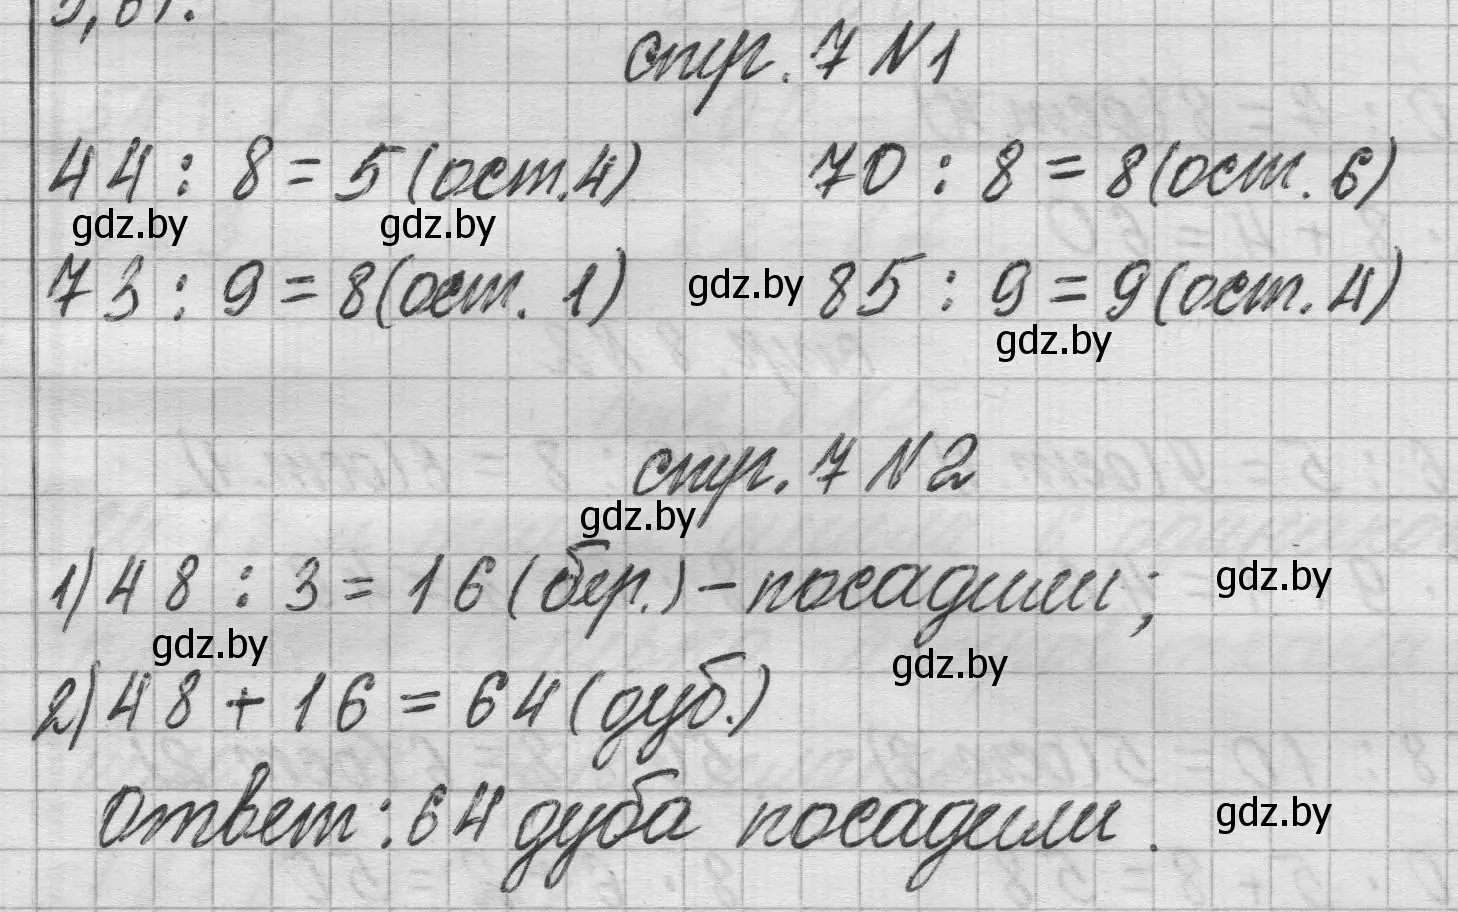 стр. 7 N 1
44 : 8 = 5 (ост. 4) 70 : 8 = 8 (ост. 6)
gdz.by gdz.by
73 : 9 = 8 (ост. 1) gdz.by 85 : 9 = 9 (ост. 4)
gdz.by
стр. 7 N 2
gdz.by
1) 48 : 3 = 16 (бер.) - посадили; gdz.by
gdz.by gdz.by
2) 48 + 16 = 64 (дуб.)
ответ: 64 дуба посадили. gdz.by